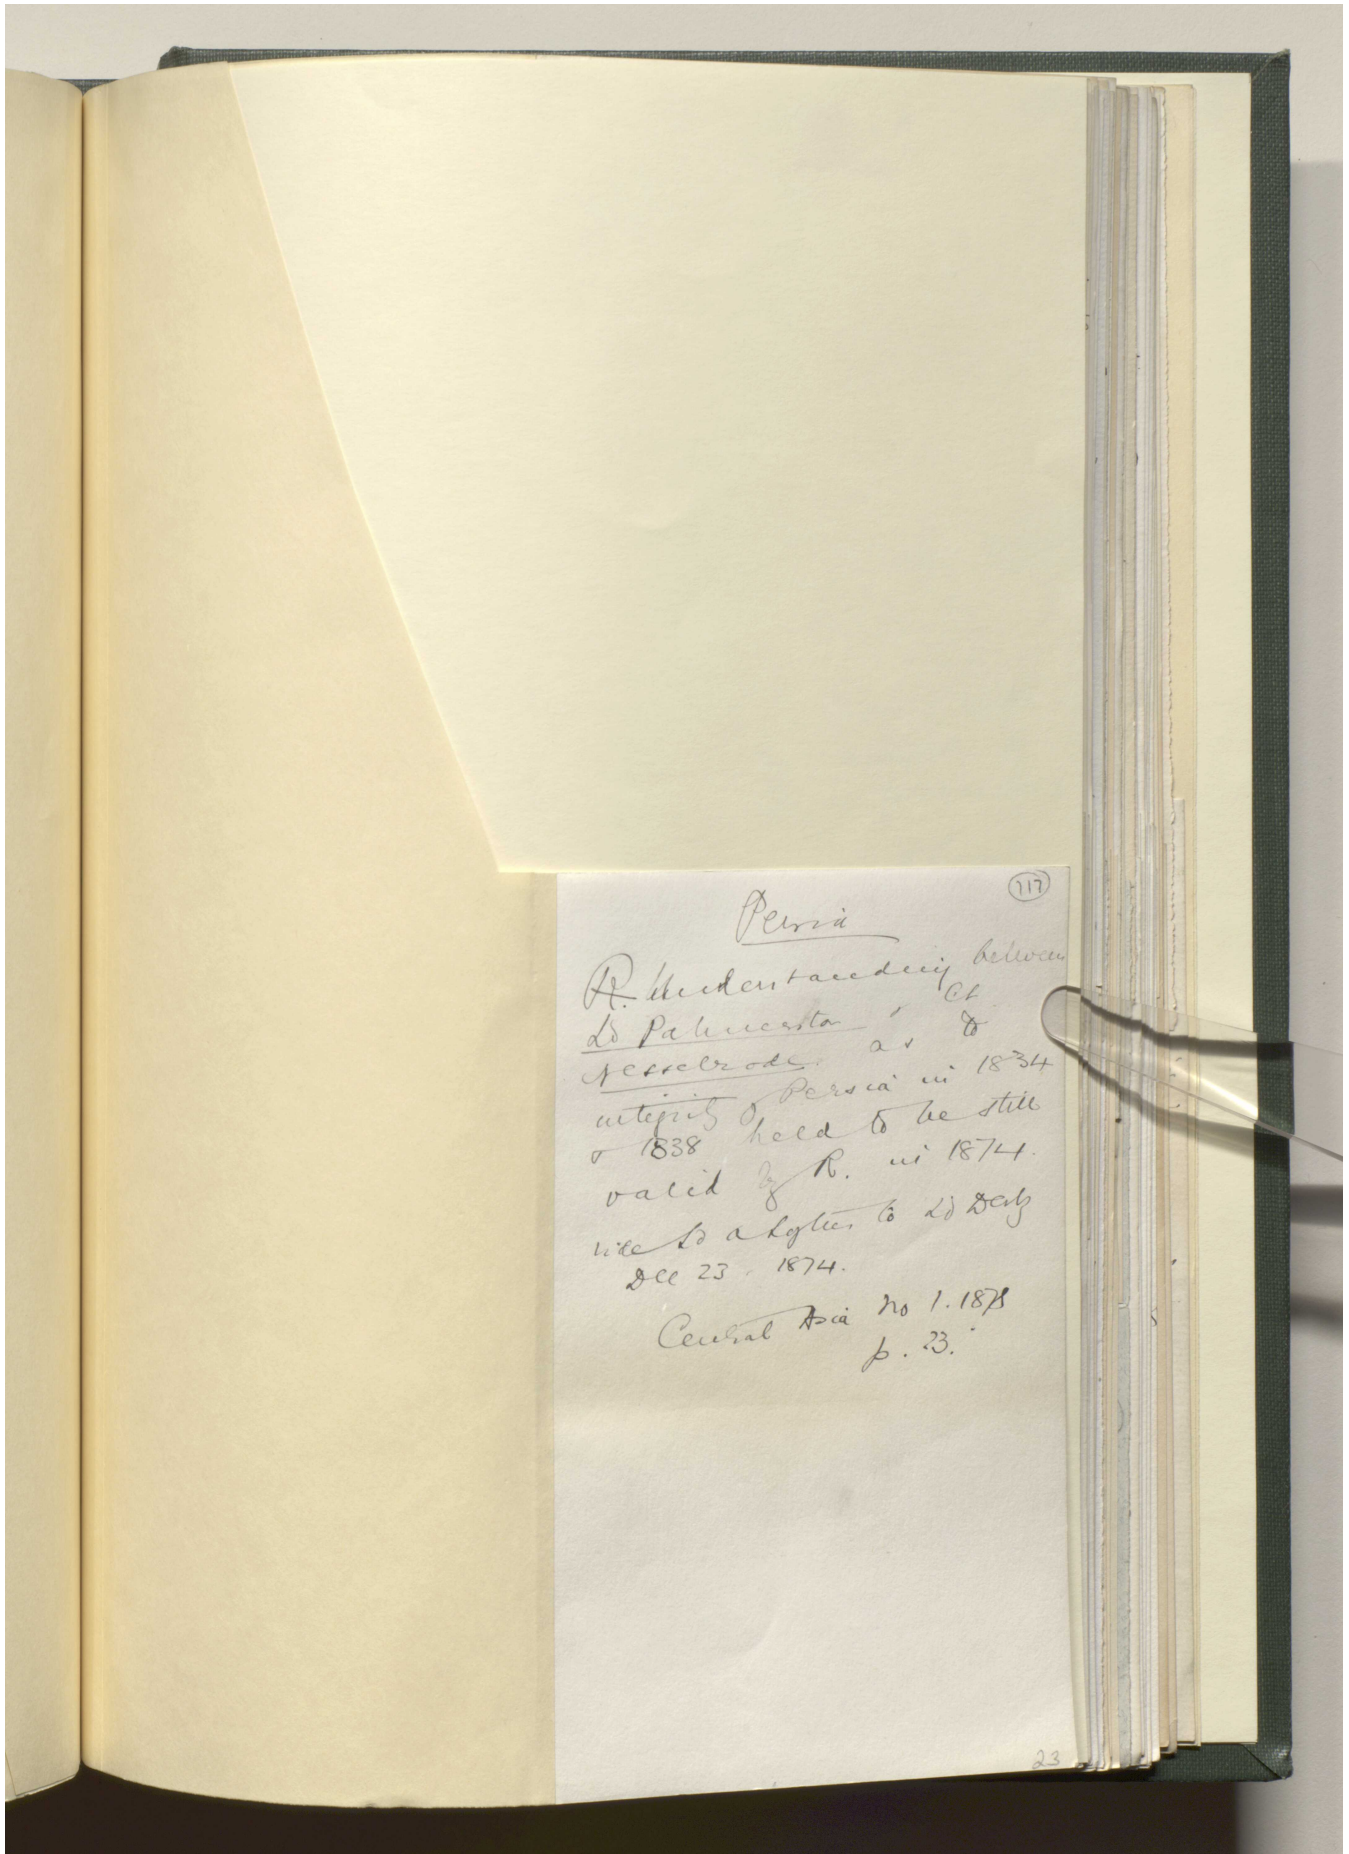 117
Persia
R. Understanding between
Ld Palmerston & Ct
Nesselrode as to
integrity of Persia in 1834
& 1838 held to be still
valid by R. in 1874.
vide Ld A Loftus to Ld Derby
Dec 23. 1874.
Central Asia No 1. 1878
p. 23.
23